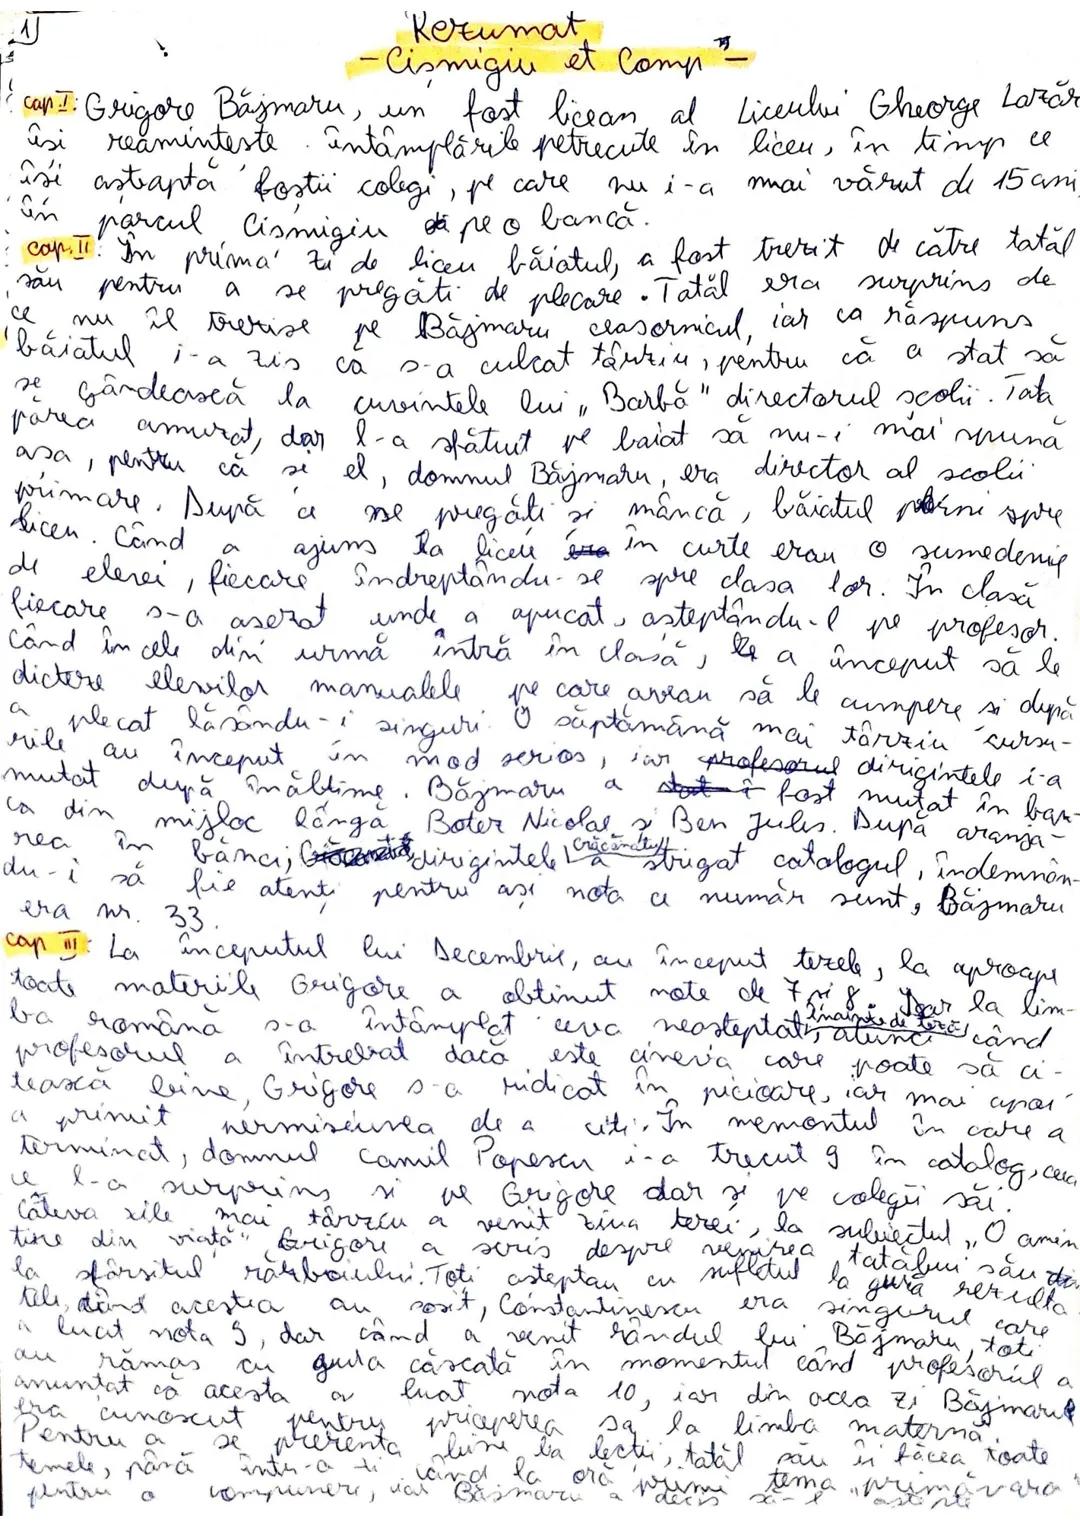 1)
Rezumat
-Cișmigiu et Comp"-
cap I: Grigore Băjmaru, un fost licean al Liceului Gheorge Lazăr
își reamintește întâmplările petrecute în liceu, în timp ce
își astrapta foștii colegi, pe care nu i-a mai văzut de 15 ani,
în parcul Cișmigiu pe o bancă.
cap. II: În prima zi de liceu băiatul, a fost trezit de către tatăl
său pentru a se pregăti de plecare. Tatăl era surprins de
ce nu îl trezise pe Băjmaru ceasornicul, iar ca răspuns
băiatul i-a zis că s-a culcat târziu, pentru că a stat să
se gândească la cuvintele lui „Barbă" directorul școlii. Tata
părea amuzat, dar l-a sfătuit pe baiat să nu-i mai spună
așa, pentru că și el, domnul Băjmaru, era director al școlii
primare. După ce se pregăti și mâncă, băiatul porni spre
liceu. Când a ajuns la liceu în curte erau o sumedenie
de elevi, fiecare îndreptându-se spre clasa lor. În clasă
fiecare s-a așezat unde a apucat, așteptându-l pe profesor.
Când în cele din urmă intră în clasă, le a început să le
dicteze elevilor manualele pe care aveau să le cumpere și după
a plecat lăsându-i singuri. O săptămână mai târziu cursu-
rile au început în mod serios, iar profesorul dirigintele i-a
mutat după înălțime. Băjmaru a fost mutat în ban-
ca din mijloc lângă Boter Nicolae și Ben Jules. După aranja-
rea în bănci, dirigintele „Crăcănatul" a strigat catalogul, îndemnân-
du-i să fie atenți pentru ași nota ce număr sunt, Băjmaru
era nr. 33.
cap III: La începutul lui Decembrie, au început tezele, la aproape
toate materiile Grigore a obtinut note de 7 și 8. Doar la lim-
ba română s-a întâmplat ceva neașteptat, înainte de teză, atunci când
profesorul a întrebat dacă este cineva care poate să ci-
tească bine, Grigore s-a ridicat în picioare, iar mai apoi
a primit permisiunea de a citi. În memontul în care a
terminat, domnul Camil Popescu i-a trecut 9 în catalog, ceea
ce l-a surprins și pe Grigore dar și pe colegii săi.
Câteva zile mai târziu a venit ziua tezei, la subiectul „O amin
tire din viață" Grigore a scris despre venirea tatălui său
la sfârsitul războiului. Toți așteptau cu sufletul la gură rezulta
tele, când acestea au sosit, Constantinescu era singurul care
a luat nota 9, dar când a venit rândul lui Băjmaru, toți
au rămas cu gura căscată în momentul când profesorul a
anuntat că acesta a luat nota 10, iar din acea zi Băjmaru
era cunoscut pentru priceperea sa la limba maternă.
Pentru a se prezenta bine la lecții, tatăl său îi făcea toate
temele, până într-o zi când la oră primi tema „primăvara"
pentru o compunere, iar Băjmaru a decis să-l